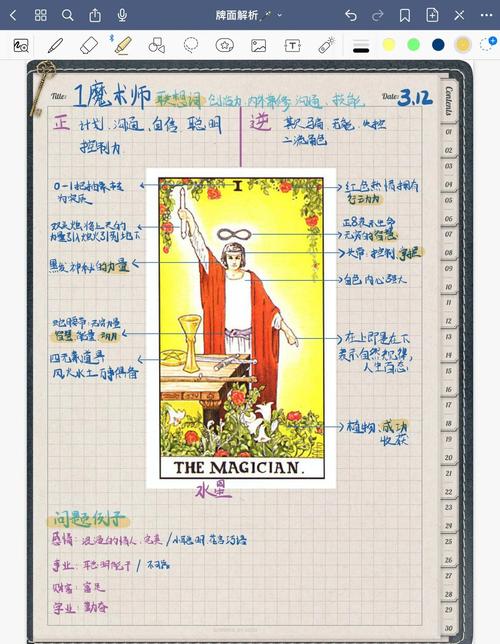 牌面解析
Title: 1魔术师 联想词 创造力、内外兼修、沟通、技能 Date: 3.12
Contents
正 计划、沟通、自信 聪明
控制力
逆 欺骗 无能 失控
二流角色
0-1把抽象转
为实质
红色热情拥有
行动力
双头烛 将上天的
力量引火引到地下
正8表示生命
无穷的智慧
黑发 神秘的力量
头带:控制、掌握
白色 内心强大
蛇腰带:无穷力量
智慧 能量
四元素道具
风火水土 万事俱备
在上即是在下
表示自然规律,
人生百态
植物:成功
收获
I
THE MAGICIAN.
水星
问题例子
感情: 浪漫的情人、完美 / 小聪明、花言巧语
事业: 聪明能干 / 不
财富: 富足
学业: 勤奋
01
02
03
04
05
06
07
08
09
10
11
12
13
14
15
16
17
18
19
20
21
22
23
24
25
26
27
28
29
30